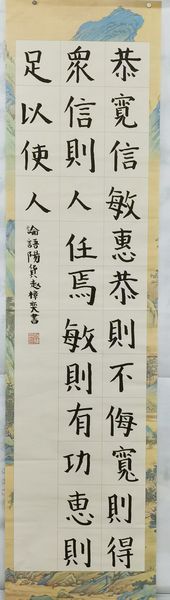 恭寬信敏惠恭則不侮寬則得
眾信則人任焉敏則有功惠則
足以使人
論語陽貨